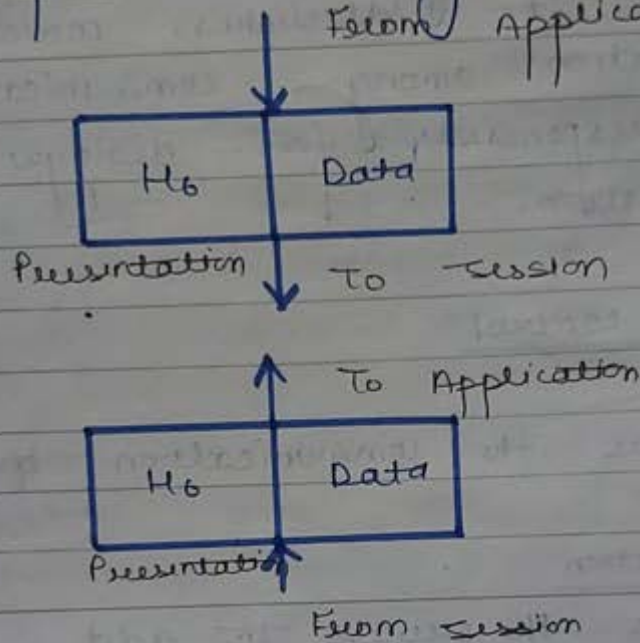 From Applica
H6 Data
Presentation To session
To Application
H6 Data
Presentation
From session